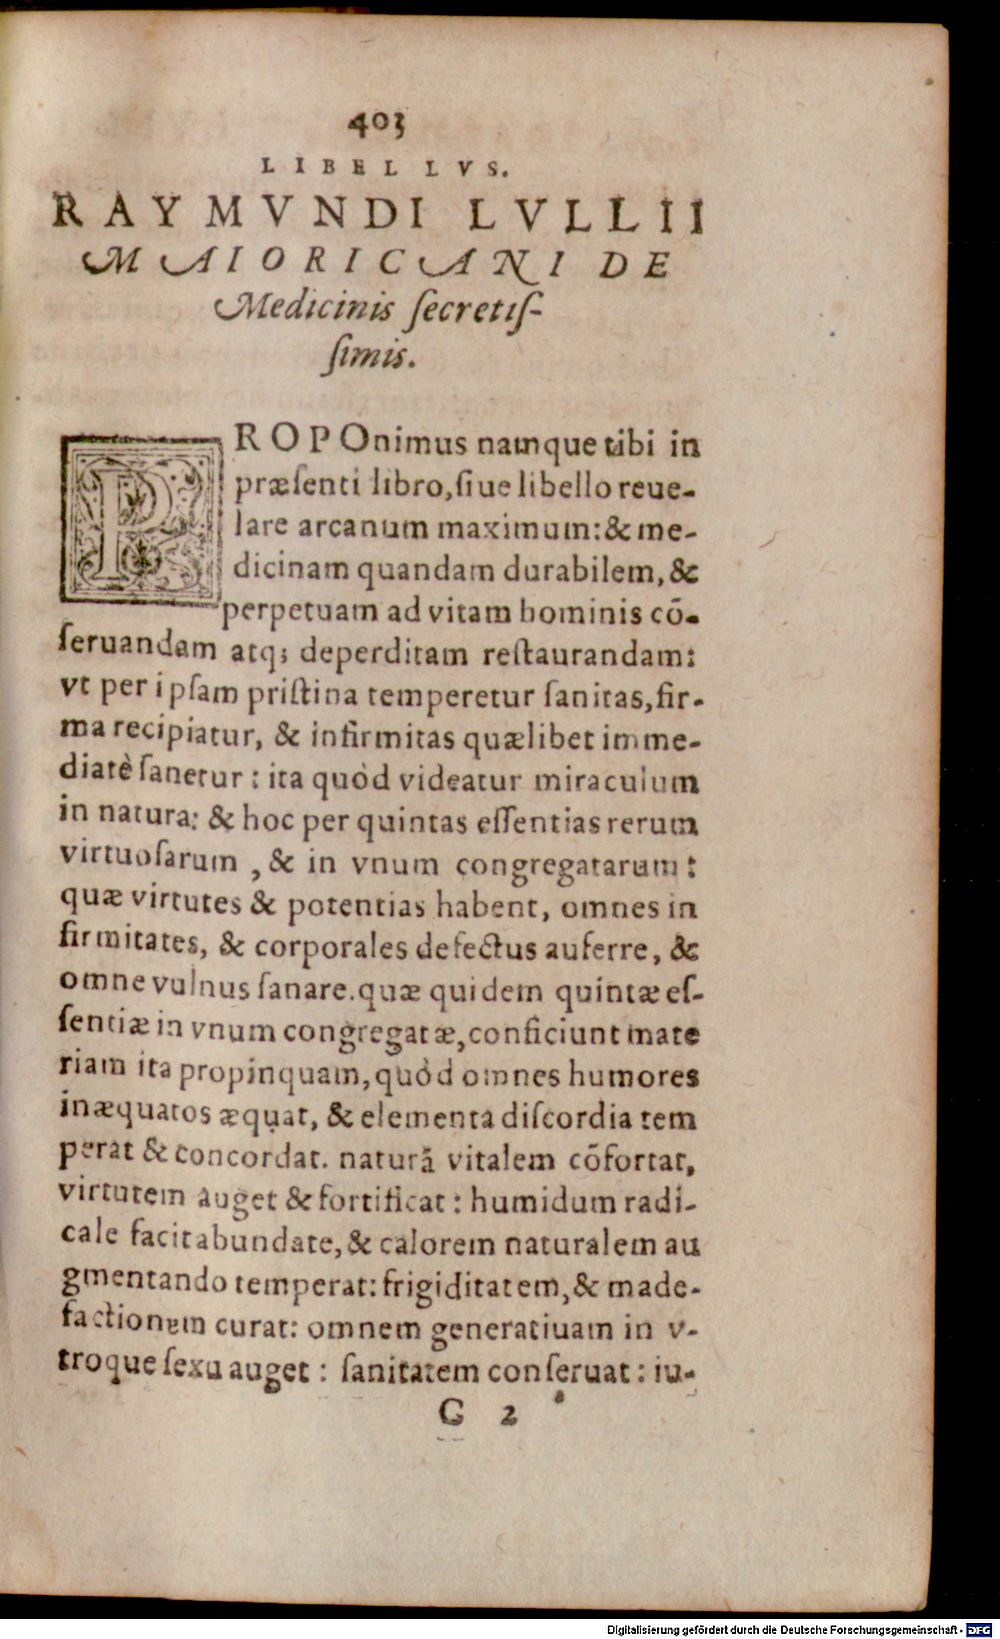 403
LIBELLVS.
RAYMVNDI LVLLII
MAIORICANI DE
Medicinis ſecretiſ-
ſimis.
PROPOnimus namque tibi in
præſenti libro, ſiue libello reue-
lare arcanum maximum: & me-
dicinam quandam durabilem, &
perpetuam ad vitam hominis cõ-
ſeruandam atq; deperditam reſtaurandam:
vt per ipſam priſtina temperetur ſanitas, fir-
ma recipiatur, & infirmitas quælibet imme-
diatè ſanetur: ita quòd videatur miraculum
in natura: & hoc per quintas eſſentias rerum
virtuoſarum, & in vnum congregatarum:
quæ virtutes & potentias habent, omnes in
firmitates, & corporales defectus auferre, &
omne vulnus ſanare. quæ quidem quintæ eſ-
ſentiæ in vnum congregatæ, conficiunt mate
riam ita propinquam, quòd omnes humores
inæquatos æquat, & elementa diſcordia tem
perat & concordat. naturã vitalem cõfortat,
virtutem auget & fortificat: humidum radi-
cale facit abundate, & calorem naturalem au
gmentando temperat: frigiditatem, & made-
factionem curat: omnem generatiuam in v-
troque ſexu auget: ſanitatem conſeruat: iu-
G 2
Digitalisierung gefördert durch die Deutsche Forschungsgemeinschaft - DFG